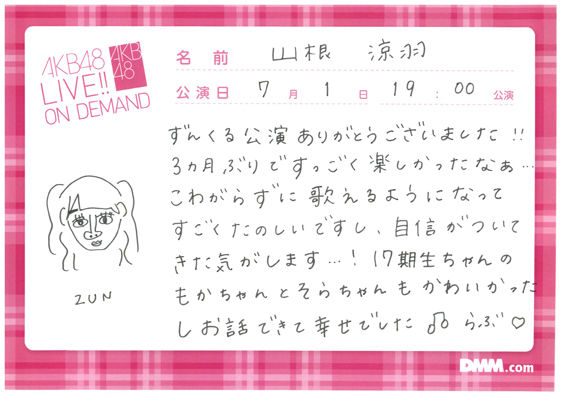 AKB48
LIVE!!
ON DEMAND
AKB
48
名前 山根 涼羽
公演日 7月1日 19:00 公演
ずんくる公演ありがとうございました!!
3ヵ月ぶりですっごく楽しかったなぁ…
こわがらずに歌えるようになって
すごくたのしいですし、自信がついて
きた気がします…! 17期生ちゃんの
もかちゃんとそらちゃんもかわいかった
しお話できて幸せでした♫ らぶ♡
ZUN
DMM.com